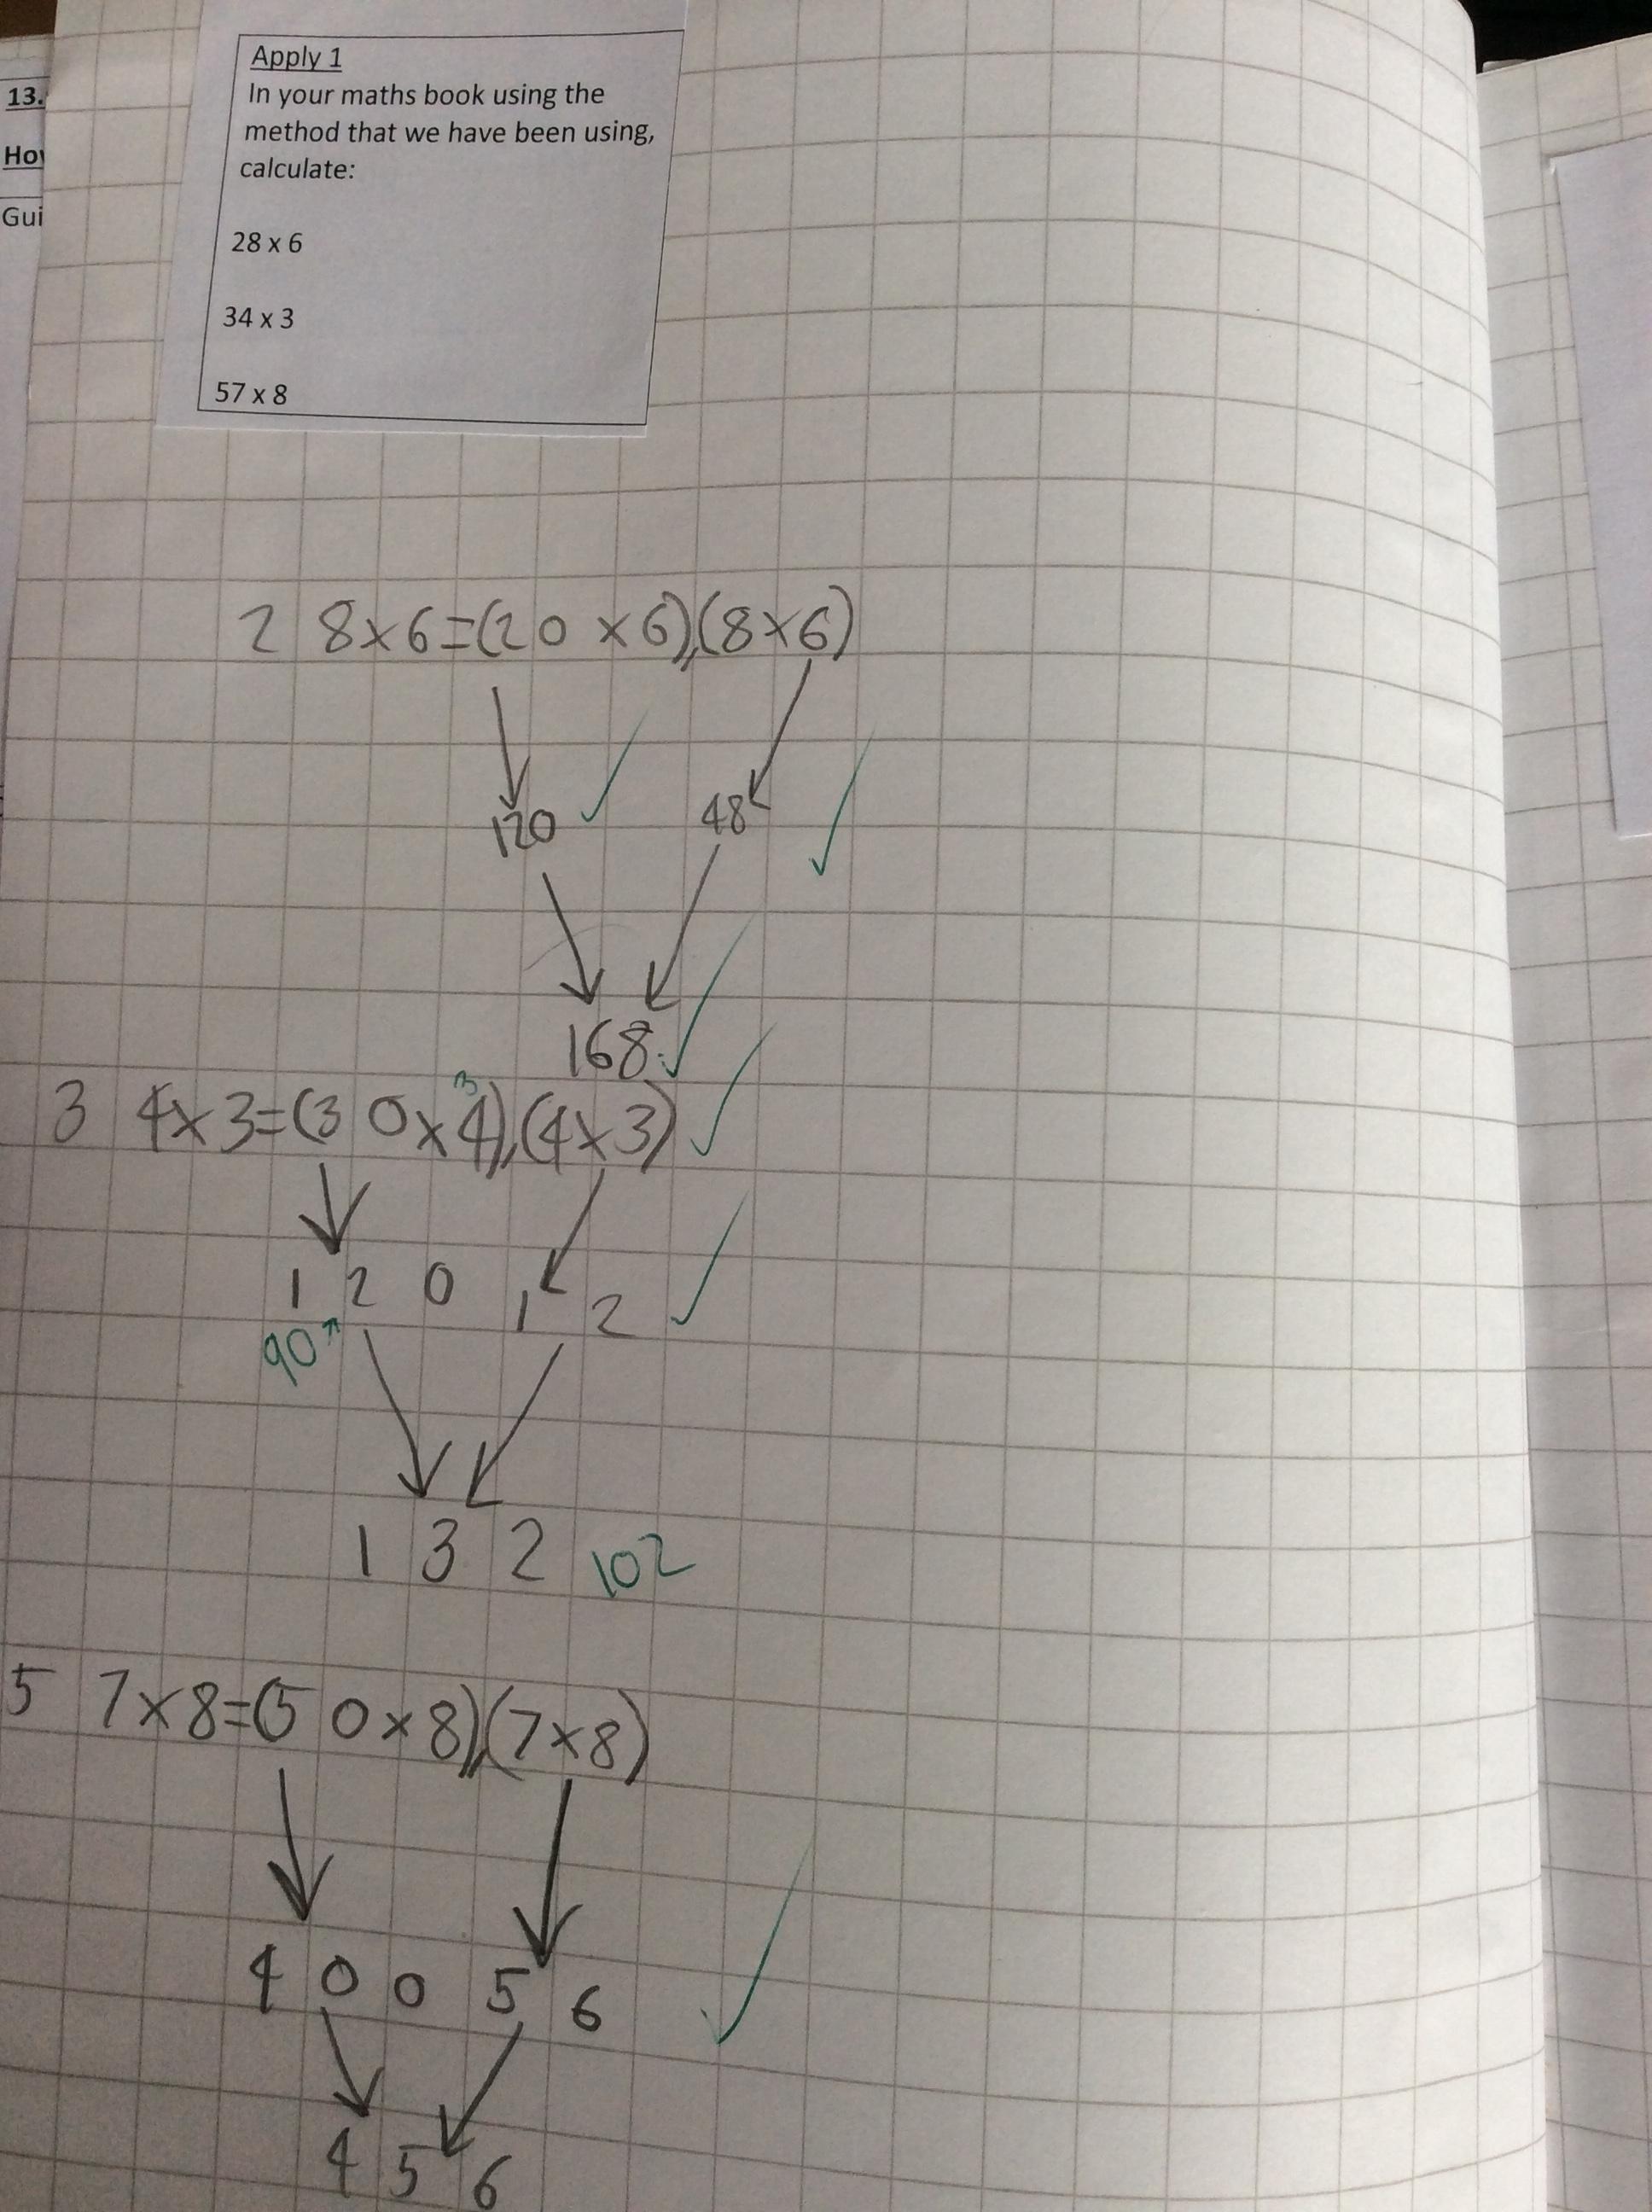 13.
Gui
Apply 1
In your maths book using the
method that we have been using,
calculate:
28 x 6
34 x 3
57 x 8
28x6=(20 x6),(8x6)
120 48
168
3
34x3=(30x4),(4x3)
120 12
90
132 102
57x8=(50x8),(7x8)
400 56
456